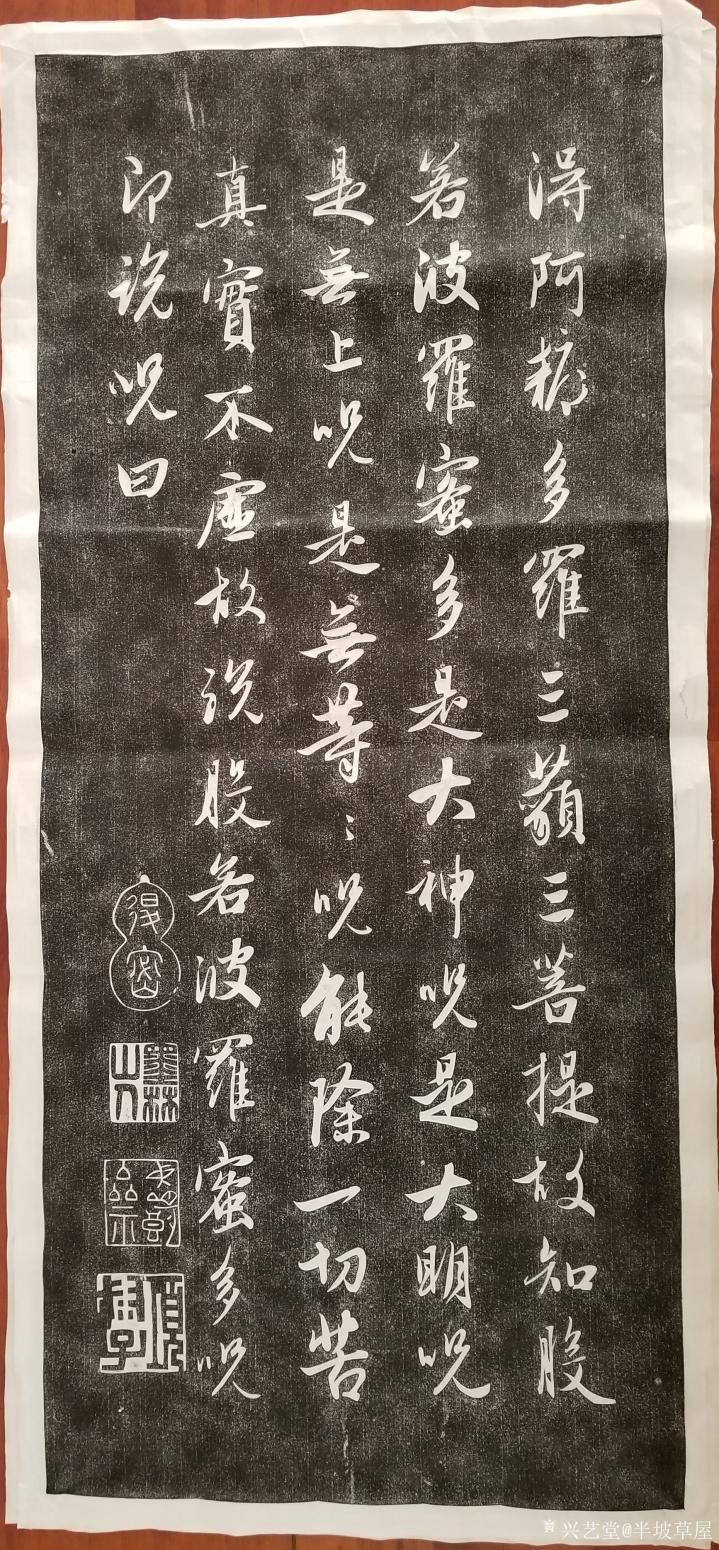 得阿耨多羅三藐三菩提故知般
若波羅蜜多是大神呪是大明呪
是無上呪是無等〻呪能除一切苦
真實不虛故說般若波羅蜜多呪
即說呪曰
得密
墨林
山人
項
兴艺堂@半坡草屋